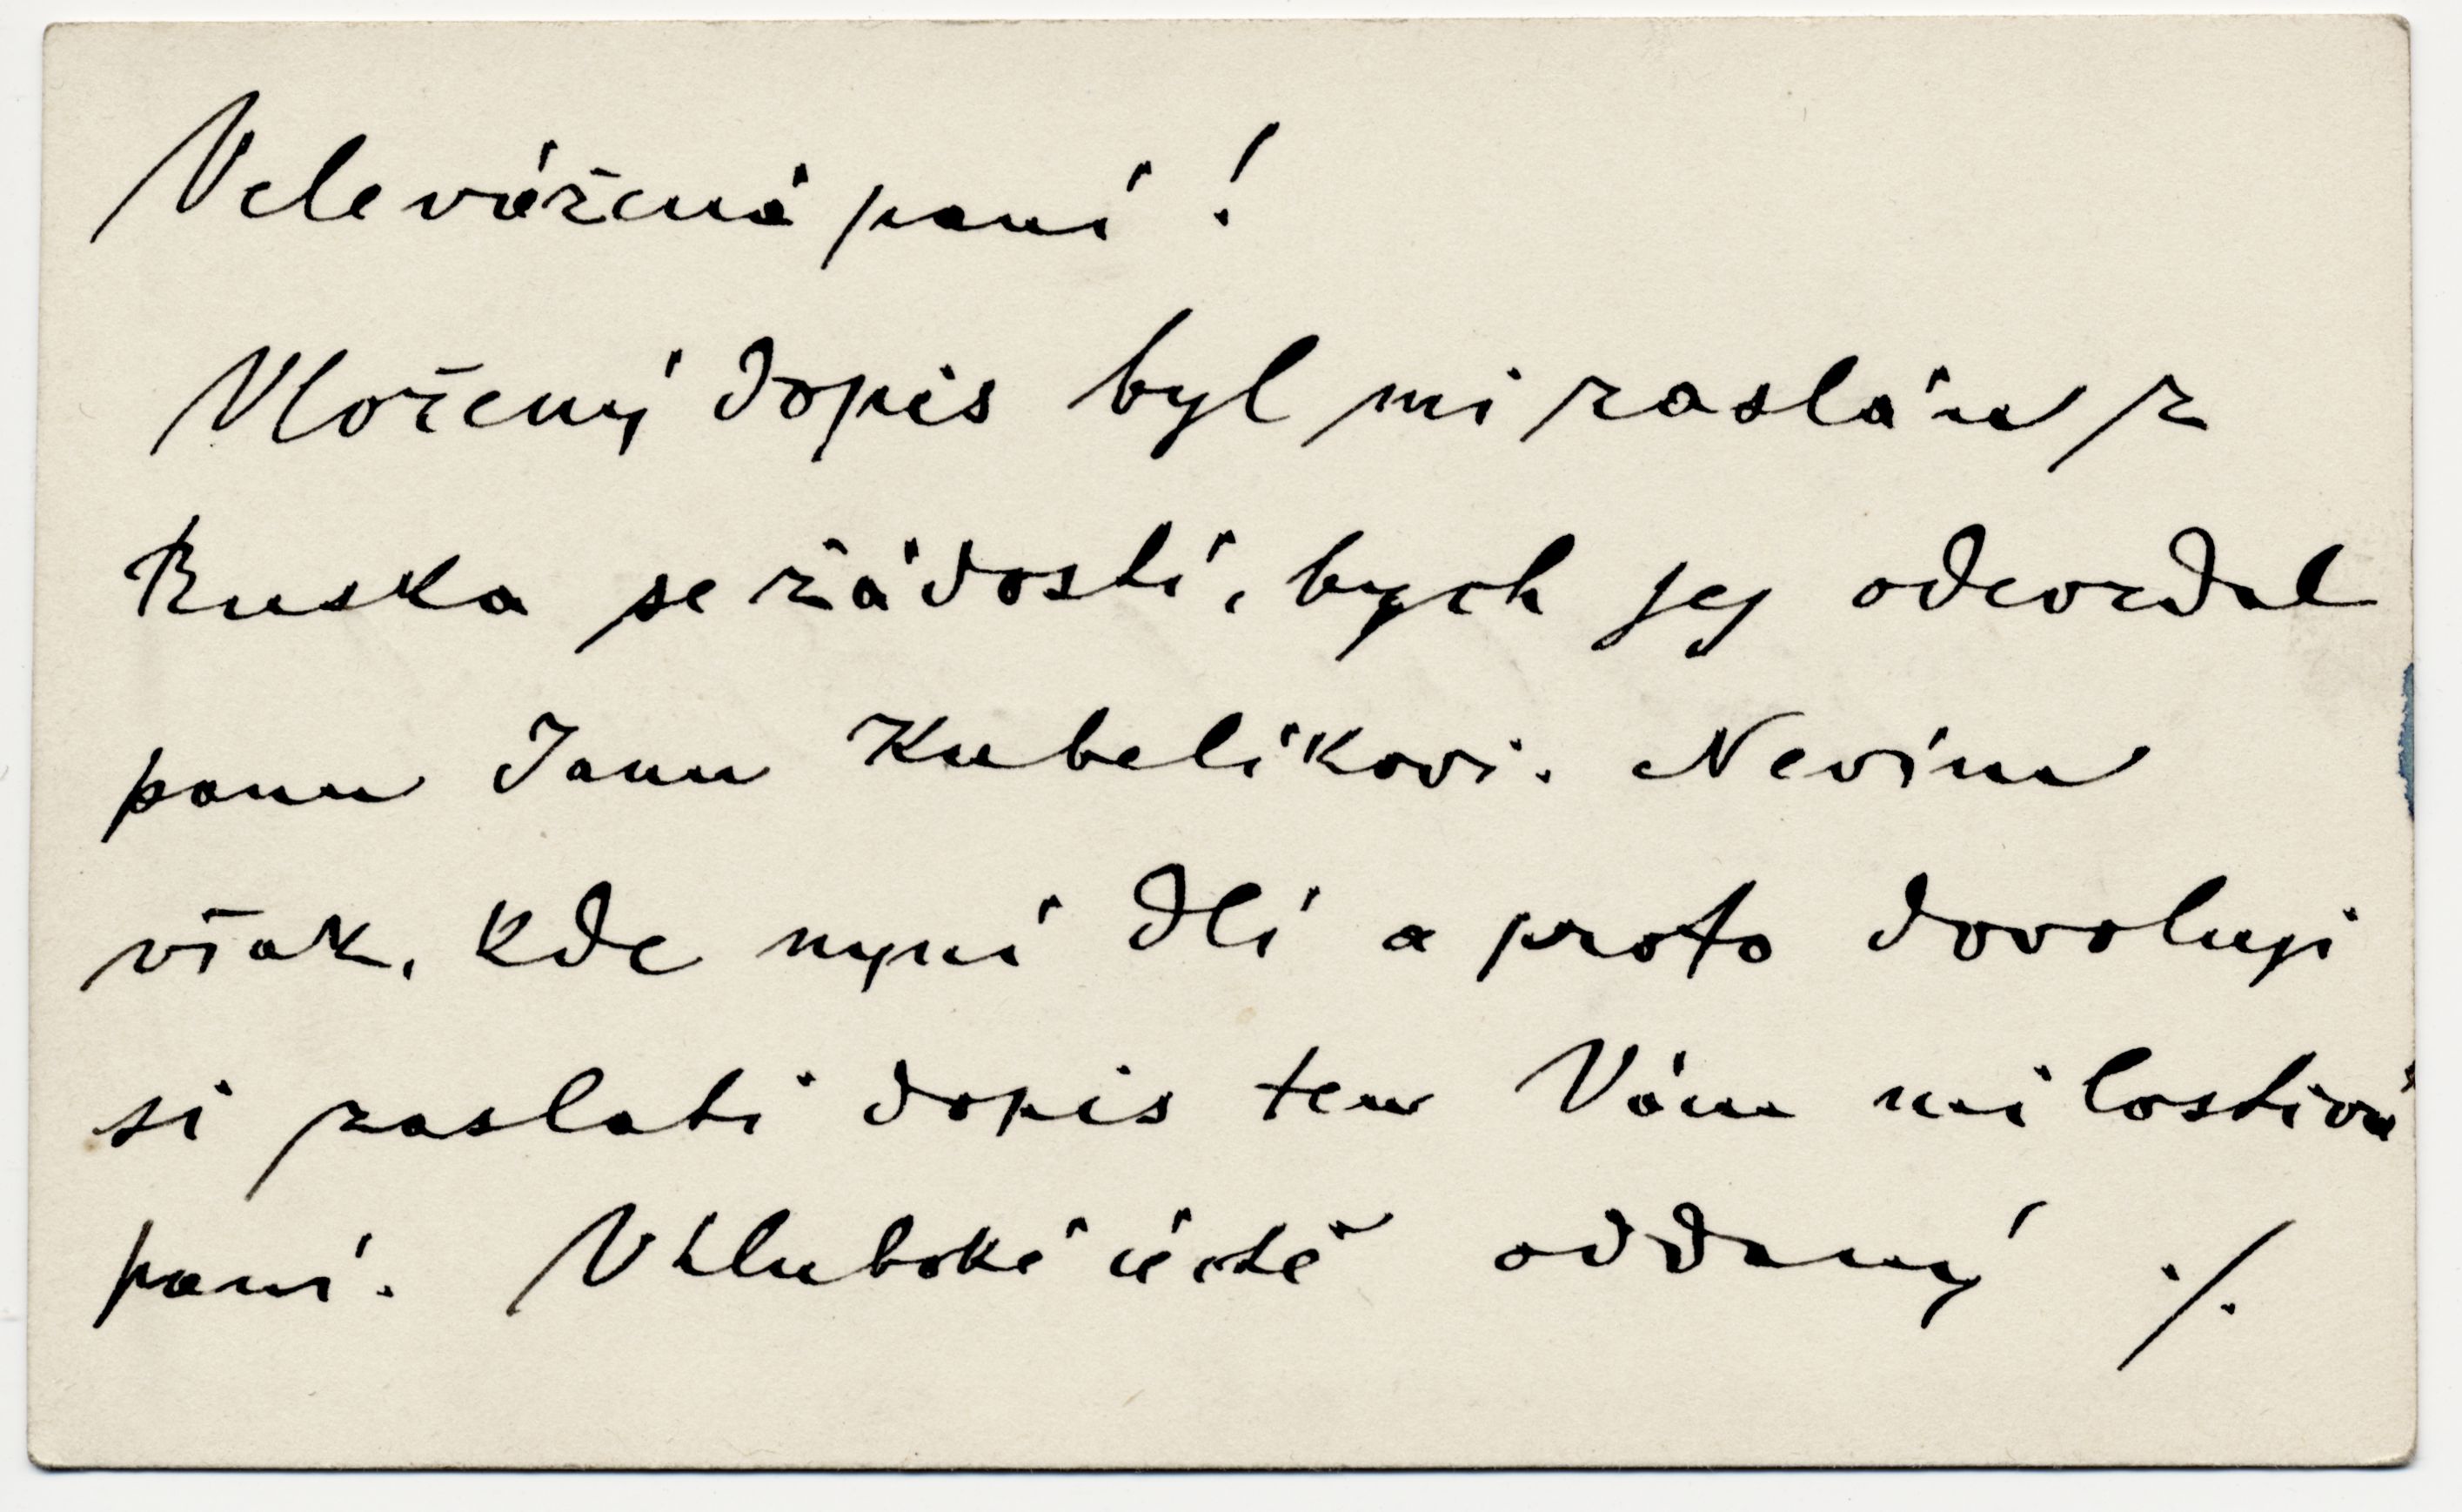 Velevážená paní!
Vložený dopis byl mi zaslán z
Ruska se žádostí, bych jej odevzdal
panu Janu Kubelíkovi. Nevím
však, kde nyní dlí a proto dovoluji
si zaslati dopis ten Vám milostivá
paní. V hluboké úctě oddaný ./.